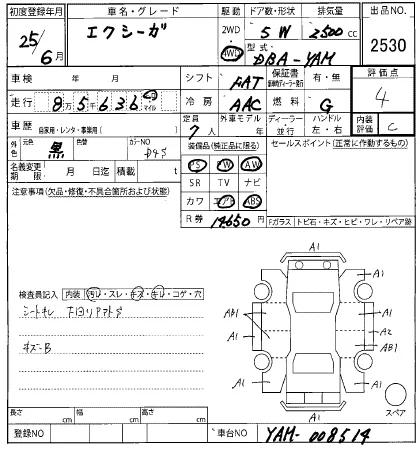 初度登録年月 車名・グレード 駆動 ドア数・形状 排気量 出品NO.
25/6月 エクシーガ 2WD・4WD 5 W 2500cc 2530
型式 DBA-YAM
車検 年 月 シフト FAT 保証書 有・無 評価点
走行 8万5千636 km マイル 冷房 AAC 燃料 G 4
車歴 自家用・レンタ・事業用( ) 定員 7人 外車モデル 年 ディーラー・並行 ハンドル 左・右 内装評価 C
外色 元色 黒 色替 カラーNO D4S 装備品(純正品に限る) セールスポイント(正常に作動するもの)
名義変更期限 月 日迄 積載 t PS PW AW
注意事項(欠品・修復・不具合箇所および状態) SR TV ナビ
カワ エアB ABS
R券 14650円 Fガラス トビ石・キズ・ヒビ・ワレ・リペア跡
A1
A1 A1
検査員記入 内装 汚れ・スレ・キズ・キレ・コゲ・穴
シートキレ
AB1 A1
A1 A2
AB1
キズニB
A1 A1 A1
A1
スペア
長さ cm 幅 cm 高さ cm
登録NO 車台NO YAM-008514